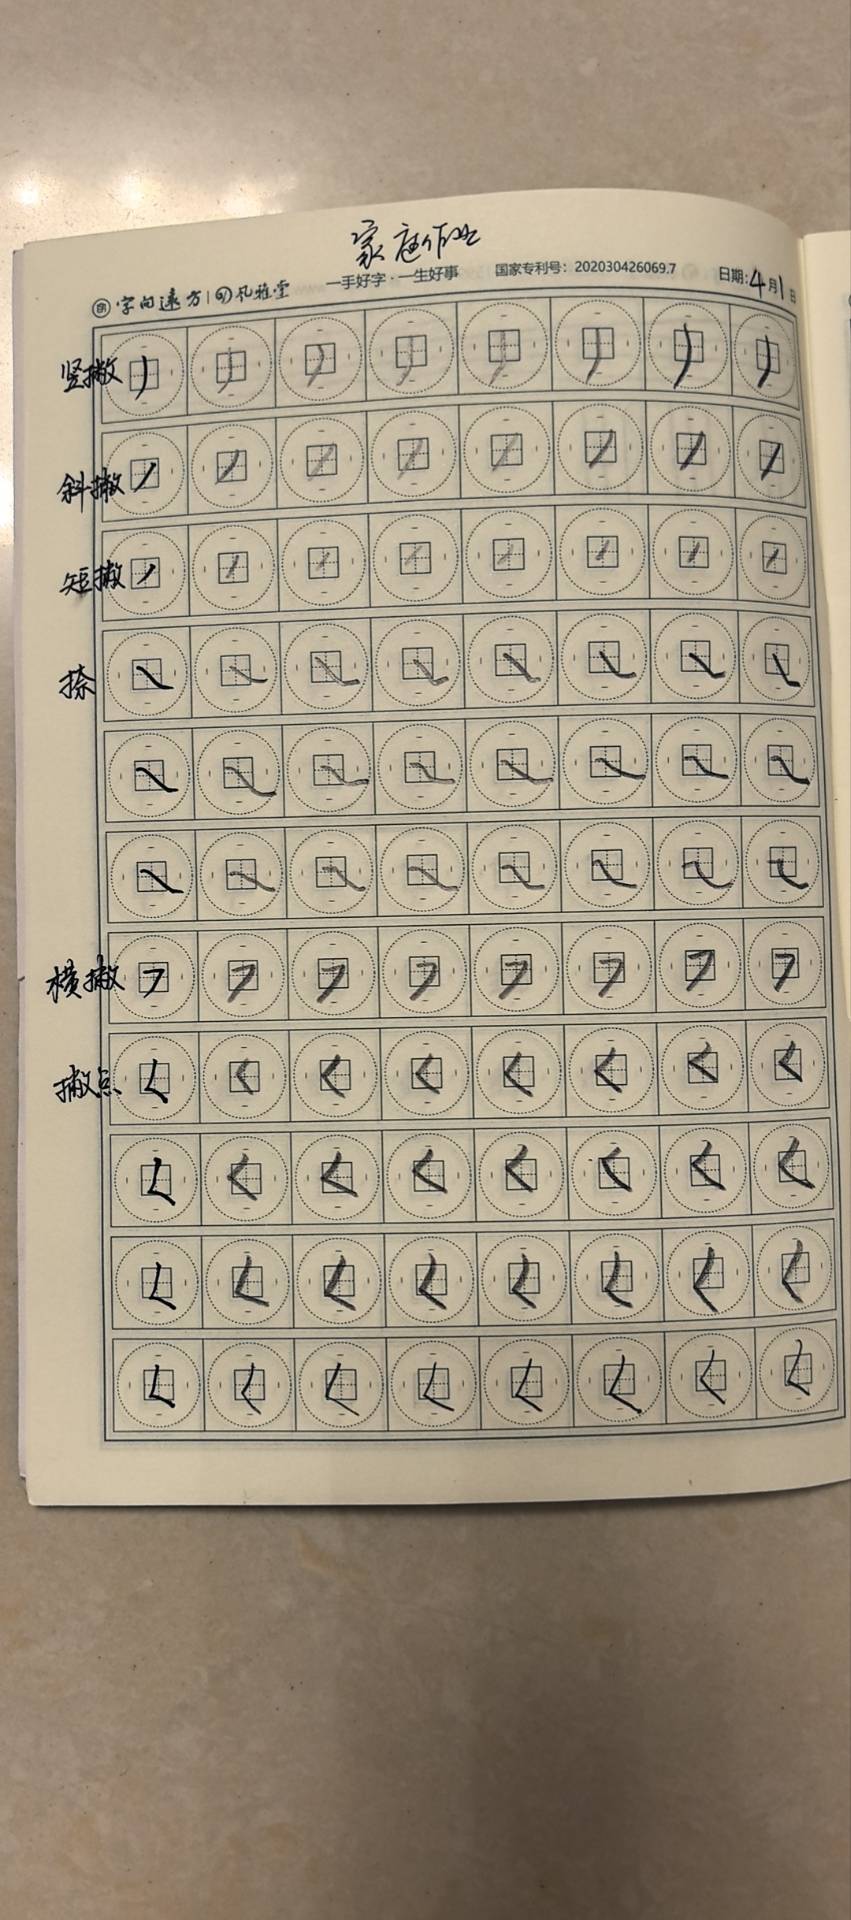 家庭作业
字向远方 礼雅堂 一手好字·一生好事 国家专利号：202030426069.7 日期：4月1日
竖撇
斜撇
短撇
捺
横撇
撇点